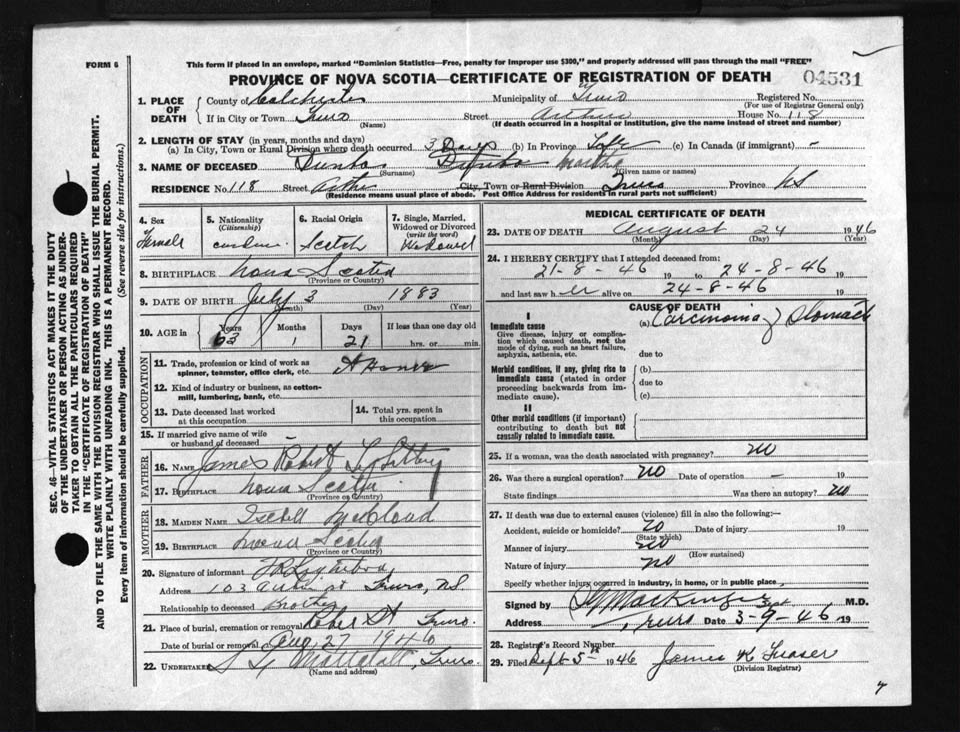 FORM 6
This form if placed in an envelope, marked "Dominion Statistics—Free, penalty for improper use $300," and properly addressed will pass through the mail "FREE"
PROVINCE OF NOVA SCOTIA—CERTIFICATE OF REGISTRATION OF DEATH 04531
1. PLACE OF DEATH
County of Colchester Municipality of Truro Registered No.
(For use of Registrar General only)
If in City or Town Truro Street Arthur House No. 118
(Name) (If death occurred in a hospital or institution, give the name instead of street and number)
2. LENGTH OF STAY (in years, months and days)
(a) In City, Town or Rural Division where death occurred 3 Days (b) In Province Life (c) In Canada (if immigrant) -
3. NAME OF DECEASED Martha
(Surname) (Given name or names)
RESIDENCE No. 118 Street City, Town or Rural Division Truro Province NS
(Residence means usual place of abode. Post Office Address for residents in rural parts not sufficient)
4. Sex Female
5. Nationality (Citizenship)
6. Racial Origin Scotch
7. Single, Married, Widowed or Divorced (write the word) Widowed
8. BIRTHPLACE Nova Scotia
(Province or Country)
9. DATE OF BIRTH July 3 1883
(Month) (Day) (Year)
10. AGE in Years 63 Months 1 Days 21 If less than one day old hrs. or min.
OCCUPATION
11. Trade, profession or kind of work as spinner, teamster, office clerk, etc. At Home
12. Kind of industry or business, as cotton-mill, lumbering, bank, etc.
13. Date deceased last worked at this occupation
14. Total yrs. spent in this occupation
15. If married give name of wife or husband of deceased
FATHER
16. NAME James Robert
17. BIRTHPLACE Nova Scotia
(Province or Country)
MOTHER
18. MAIDEN NAME McCloud
19. BIRTHPLACE Nova Scotia
(Province or Country)
20. Signature of informant
Address 103 St Truro, N.S.
Relationship to deceased Brother
21. Place of burial, cremation or removal Robie St Truro.
Date of burial or removal Aug 27 1946
22. UNDERTAKER Truro.
(Name and address)
MEDICAL CERTIFICATE OF DEATH
23. DATE OF DEATH August 24 1946
(Month) (Day) (Year)
24. I HEREBY CERTIFY that I attended deceased from:
21-8-46 19 to 24-8-46 19
and last saw her alive on 24-8-46 19
CAUSE OF DEATH
I
Immediate cause (a) Carcinoma of Stomach
Give disease, injury or complication which caused death, not the mode of dying, such as heart failure, asphyxia, asthenia, etc.
due to
Morbid conditions, if any, giving rise to immediate cause (stated in order proceeding backwards from immediate cause).
(b)
due to
(c)
II
Other morbid conditions (if important) contributing to death but not causally related to immediate cause.
25. If a woman, was the death associated with pregnancy? No
26. Was there a surgical operation? No Date of operation - 19
State findings Was there an autopsy? No
27. If death was due to external causes (violence) fill in also the following:—
Accident, suicide or homicide? No Date of injury 19
(State which)
Manner of injury No
(How sustained)
Nature of injury No
Specify whether injury occurred in industry, in home, or in public place
Signed by MacKenzie M.D.
Address Truro Date Sept 3-9-46 19
28. Registrar's Record Number
29. Filed Sept 5th 1946 James K Fraser
(Division Registrar)
SEC. 46—VITAL STATISTICS ACT MAKES IT THE DUTY
OF THE UNDERTAKER OR PERSON ACTING AS UNDER-
TAKER TO OBTAIN ALL THE PARTICULARS REQUIRED
IN THE "CERTIFICATE OF REGISTRATION OF DEATH"
AND TO FILE THE SAME WITH THE DIVISION REGISTRAR WHO SHALL ISSUE THE BURIAL PERMIT.
WRITE PLAINLY WITH UNFADING INK. THIS IS A PERMANENT RECORD.
Every item of information should be carefully supplied. (See reverse side for instructions.)